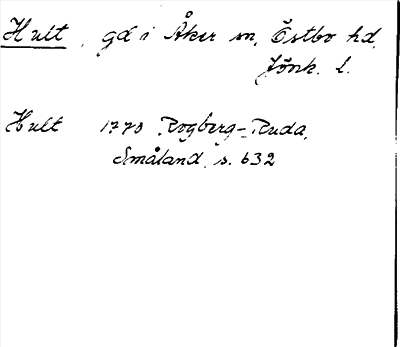 Hult, gd i Åker sn, Östbo hd,
Jönk. l.
Hult 1770 Rogberg-Ruda,
Småland, s. 632